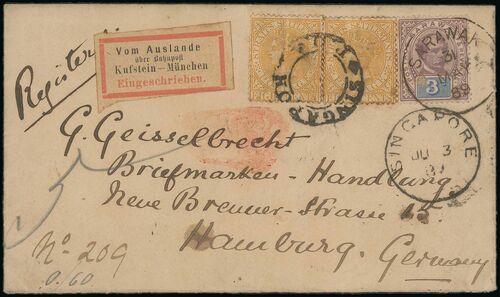 Registered
Vom Auslande
über Bahnpost
Kufstein—München
Eingeschrieben.
SARAWAK
3
SARAWAK
89
SINGAPORE
JU 3
G. Geisselbrecht
Briefmarken-Handlung
Neue Brenner-Strasse
Hamburg. Germany
No 209
0.60